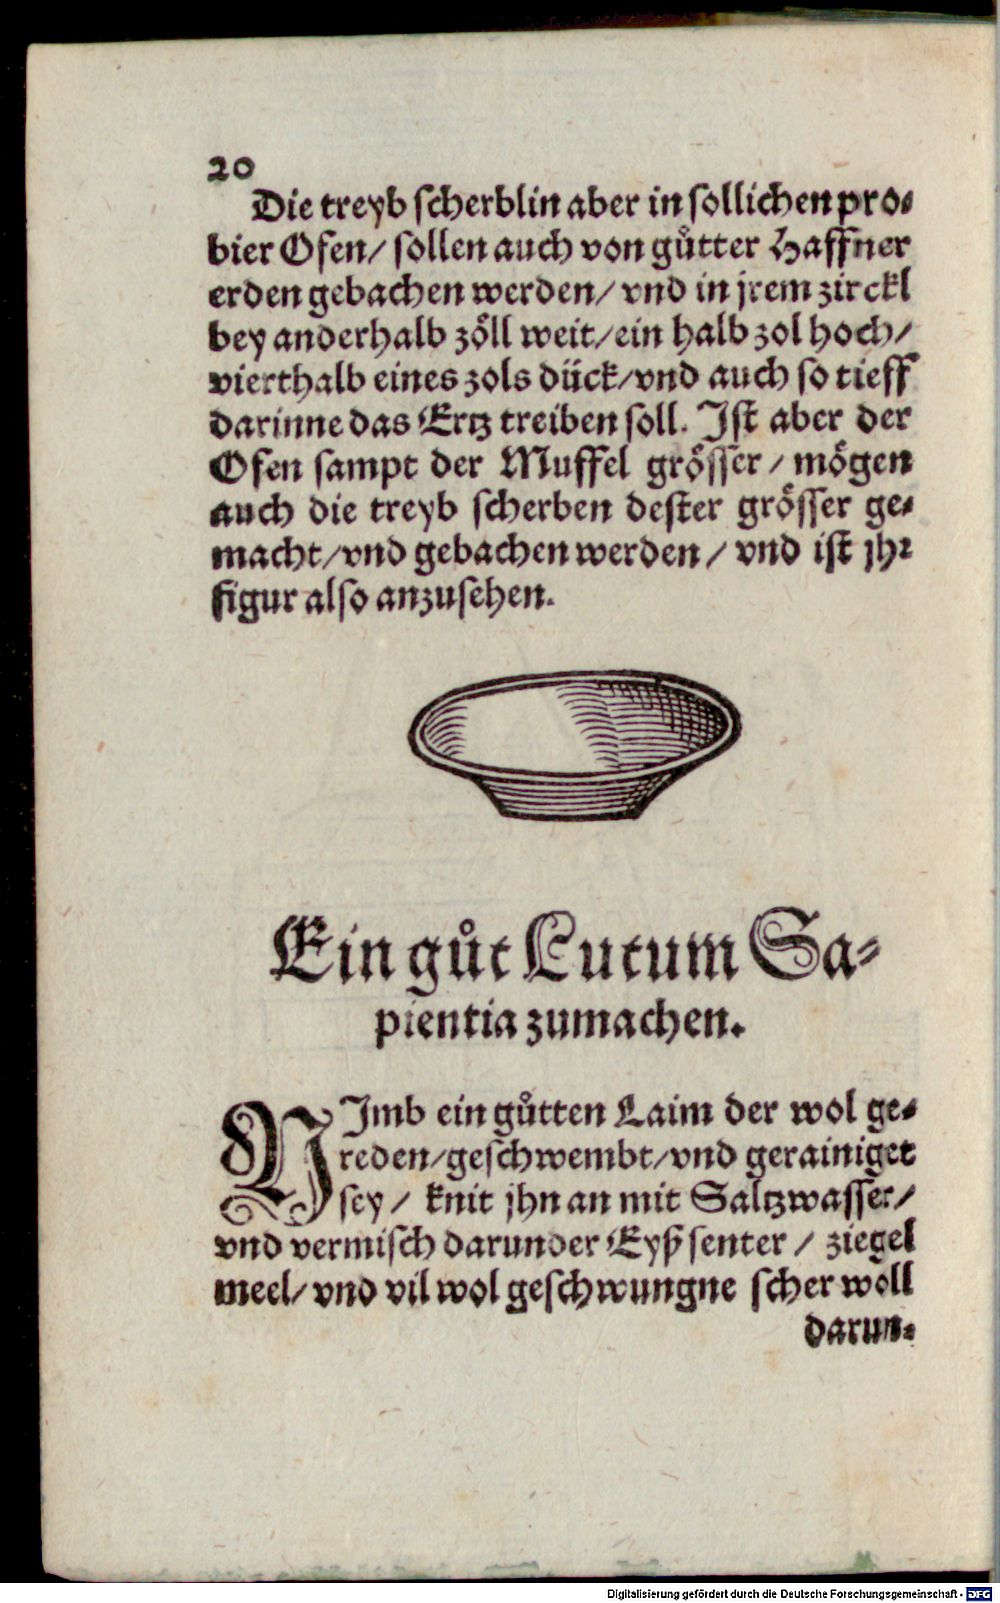 20
Die treyb scherblin aber in sollichen pro⸗
bier Ofen/ sollen auch von gůtter Haffner
erden gebachen werden/ vnd in jrem zirckl
bey anderhalb zöll weit/ ein halb zol hoch/
vierthalb eines zols dück/ vnd auch so tieff
darinne das Ertz treiben soll. Ist aber der
Ofen sampt der Muffel grösser/ mögen
auch die treyb scherben dester grösser ge⸗
macht/ vnd gebachen werden/ vnd ist jhr
figur also anzusehen.
Ein gůt Lutum Sa⸗
pientia zumachen.
NImb ein gůtten Laim der wol ge⸗
reden/ geschwembt/ vnd gerainiget
sey/ knit jhn an mit Saltzwasser/
vnd vermisch darunder Eyß senter/ ziegel
meel/ vnd vil wol geschwungne scher woll
darun⸗
Digitalisierung gefördert durch die Deutsche Forschungsgemeinschaft - DFG